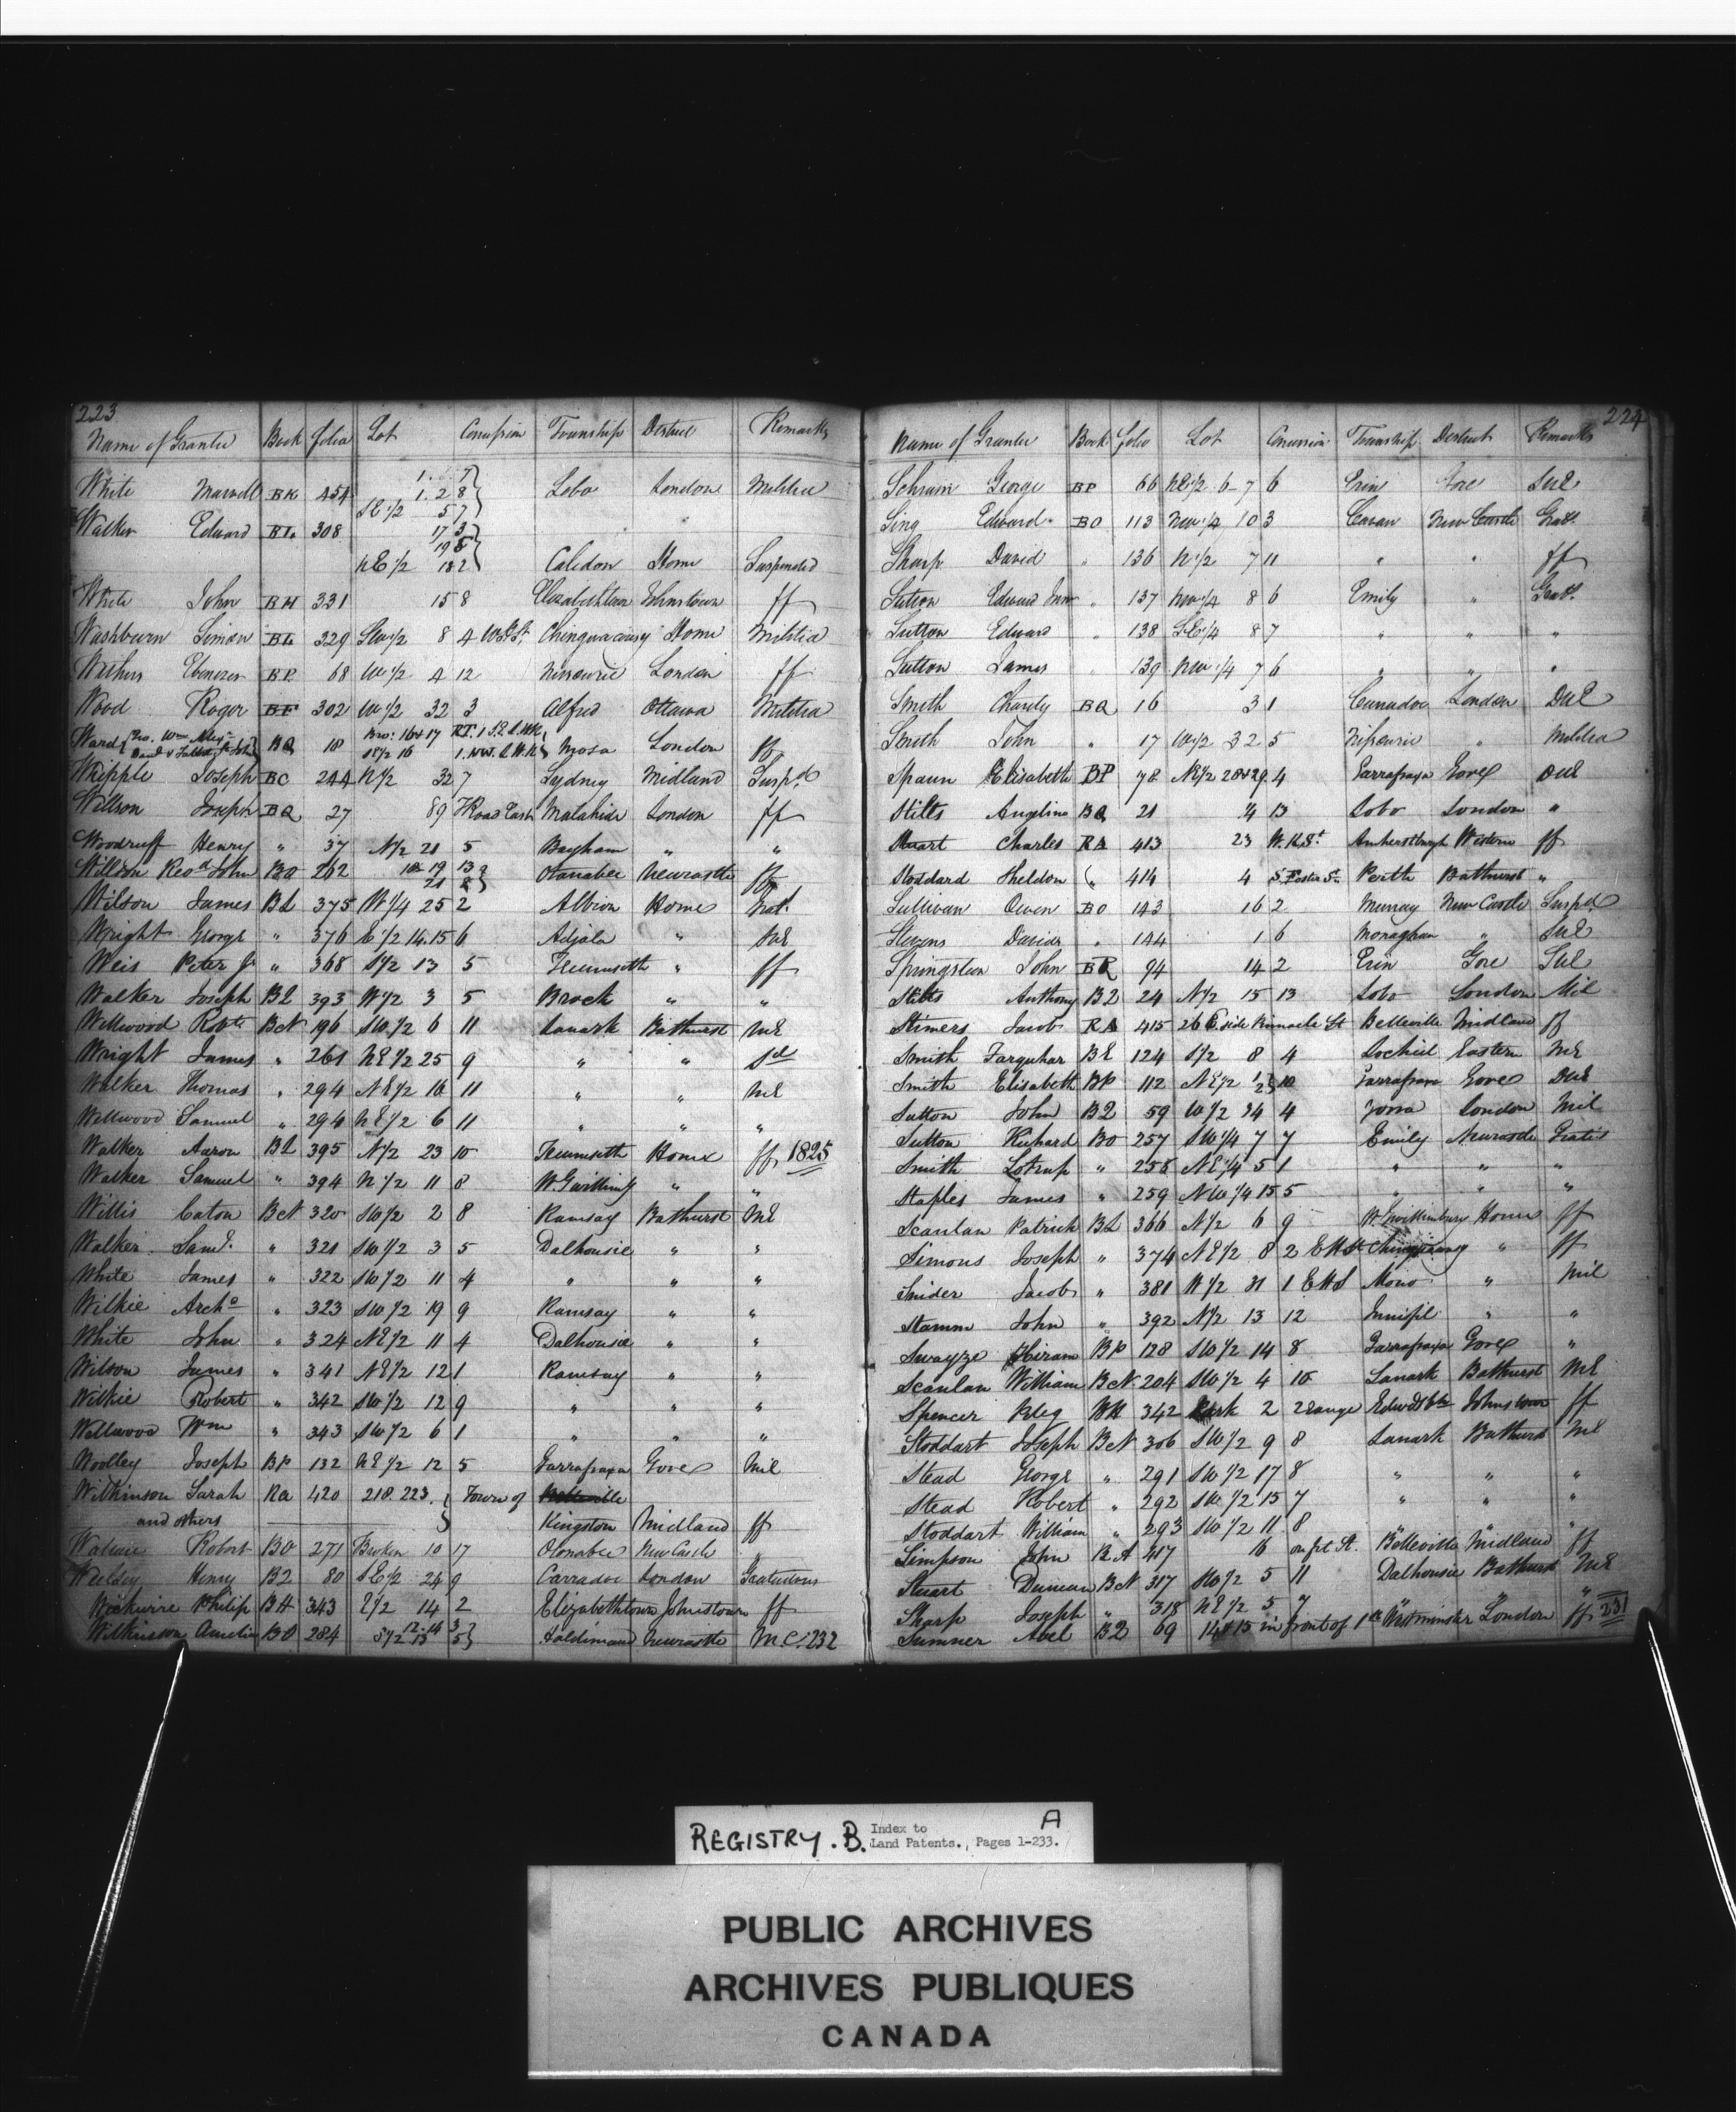 223
Name of Grantee Book folio Lot Concession Township District Remarks
White Maxwell BK 454 1. 2 8 Lobo London Militia
SE 1/2 5 7
Walker Edward BL 308 17 3
19 5
NE 1/2 18 2 Caledon Home Suspended
White John BH 331 15 8 Elizabethtown Johnstown ff
Washburn Simon BL 329 SW 1/2 8 4 W St. Chinguacousy Home Militia
Withers Ebenezer BP 68 W 1/2 4 12 Nissourie London ff
Wood Roger BF 302 W 1/2 32 3 Alfred Ottawa Militia
Ward BQ 18 Bro: 16 & 17 Mosa London ff
Whipple Joseph BC 244 N 1/2 32 7 Sydney Midland Suspd
Willson Joseph BQ 27 89 Road East Malahide London ff
Woodruff Henry " 37 N 1/2 21 5 Bayham " "
Willson Revd John BO 262 18 19 13 Otonabee Newcastle ff
21 8
Wilson James BL 375 W 1/4 25 2 Albion Home Grat.
Wright George " 376 E 1/2 14.15 6 Adjala "
Weis Peter Jr " 368 S 1/2 13 5 Tecumseth " ff
Walker Joseph BL 393 W 1/2 3 5 Brock " "
Wellwood Robt BcN 196 SW 1/2 6 11 Lanark Bathurst ME
Wright James " 261 NE 1/2 25 9 " " Sd
Walker Thomas " 294 NE 1/2 16 11 " " ME
Wellwood Samuel " 294 NE 1/2 6 11 " " "
Walker Aaron BL 395 N 1/2 23 10 Tecumseth Home ff 1825
Walker Samuel " 394 N 1/2 11 8 W Gwillimg " "
Willis Caton BcN 320 SW 1/2 2 8 Ramsay Bathurst ME
Walker Saml. " 321 SW 1/2 3 5 Dalhousie " "
White James " 322 SW 1/2 11 4 " " "
Wilkie Archd " 323 SW 1/2 19 9 Ramsay " "
White John " 324 NE 1/2 11 4 Dalhousie " "
Wilson James " 341 NE 1/2 12 1 Ramsay " "
Wilkie Robert " 342 SW 1/2 12 9 " " "
Wellwood Wm " 343 SW 1/2 6 1 " " "
Woolley Joseph BP 132 NE 1/2 12 5 Garrafraxa Gore Mil
Wilkinson Sarah RA 420 218. 223. Town of Belleville
and others Kingston Midland ff
Robert BO 271 Broken 10 17 Otonabee New Castle "
Henry B2 80 SE 1/2 24 9 Carradoc London Gratuitous
Wickwire Philip BH 343 E 1/2 14 2 Elizabethtown Johnstown ff
Wilkinson Amelia BO 284 12.14 3
S 1/2 13 5 Haldimand Newcastle M.C. 232
224
Name of Grantee Book folio Lot Concession Township District Remarks
Schram George BP 66 NE 1/2 6-7 6 Erin Gore
Sing Edward BO 113 NW 1/4 10 3 Cavan New Castle Grat.
Sharp David " 136 N 1/2 7 11 " " ff
Sutton Edward Junr " 137 NW 1/4 8 6 Emily " Grat.
Sutton Edward " 138 SE 1/4 8 7 " " "
Sutton James " 139 NW 1/4 7 6 " " "
Smith Charity BQ 16 3 1 Carradoc London DUE
Smith John " 17 W 1/2 32 5 Nissourie " Militia
Spaun Elisabeth BP 78 NE 1/2 28 & 29 4 Garrafraxa Gore DUE
Stilts Angelina BQ 21 4 13 Lobo London "
Stuart Charles RA 413 23 W. R. St Amherstburgh Western ff
Stoddard Sheldon " 414 4 S Foster St. Perth Bathurst "
Sullivan Owen BO 143 16 2 Murray New Castle Suspd
Stevens David " 144 1 6 Monaghan "
Springsteen John BP 94 14 2 Erin Gore
Stilts Anthony B2 24 N 1/2 15 13 Lobo London Mil
Stimers Jacob RA 415 26 E side Pinnacle St Belleville Midland ff
Smith Farquhar BE 124 S 1/2 8 4 Lochiel Eastern ME
Smith Elisabeth BP 112 NE 1/2 1 2 10 Garrafraxa Gore DUE
Sutton John B2 59 W 1/2 34 4 Zorra London Mil
Sutton Richard BO 257 SW 1/4 7 7 Emily Newcastle Gratis
Smith Lotrup " 258 NE 1/4 5 1 " " "
Staples James " 259 NW 1/4 15 5 " " "
Scanlan Patrick BL 366 N 1/2 6 9 W Gwillimbury Home ff
Simons Joseph " 374 NE 1/2 8 2 E H St Chinguacousy " ff
Snider Jacob " 381 W 1/2 31 1 E H S Mono " Mil
Stamm John " 392 N 1/2 13 12 Innisfil " "
Swayze Hiram BP 128 SW 1/2 14 8 Garrafraxa Gore "
Scanlan William BcN 204 SW 1/2 4 10 Lanark Bathurst ME
Spencer Peleg BH 342 Park 2 2 Range Edwdsbh Johnstown ff
Stoddart Joseph BcN 306 SW 1/2 9 8 Lanark Bathurst ME
Stead George " 291 SW 1/2 17 8 " " "
Stead Robert " 292 SW 1/2 15 7 " " "
Stoddart William " 293 SW 1/2 11 8 " " "
Simpson John RA 417 16 on frt St. Belleville Midland ff
Stuart Duncan BcN 317 SW 1/2 5 11 Dalhousie Bathurst ME
Sharp Joseph " 318 NE 1/2 5 7 " " "
Sumner Abel B2 69 14 & 15 in front of 1st Westminster London ff 231
REGISTRY. B. Index to Land Patents. Pages 1-233. A
PUBLIC ARCHIVES
ARCHIVES PUBLIQUES
CANADA